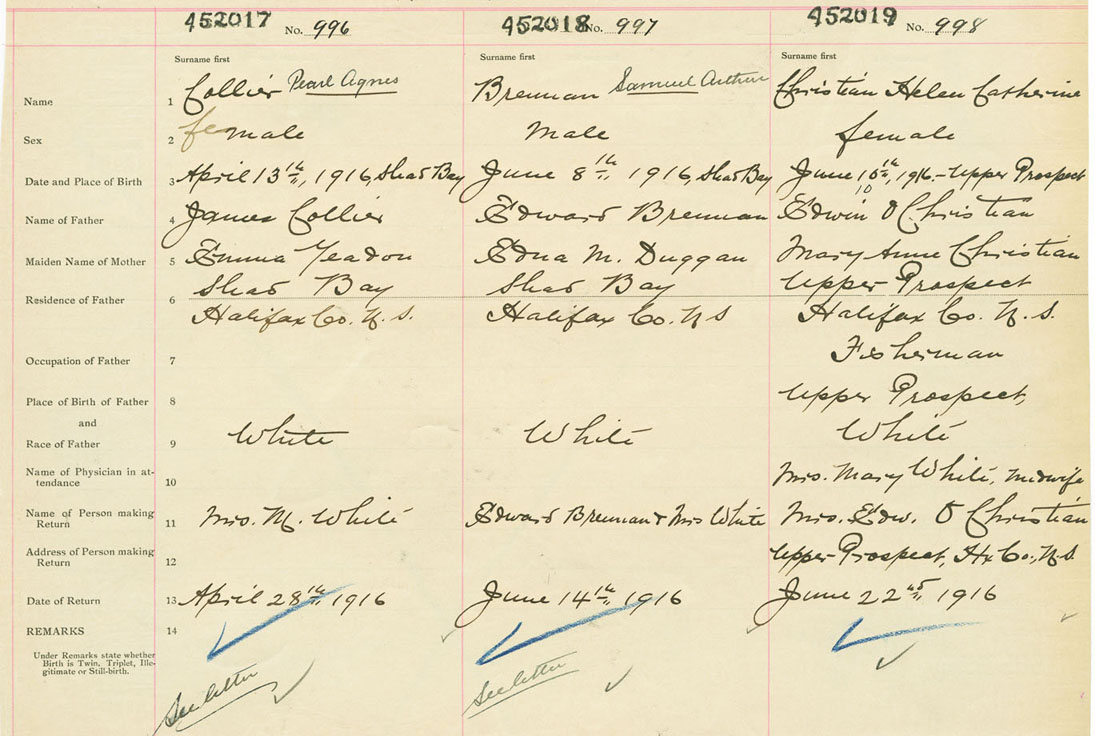 452017 No. 996 452018 No. 997 452019 No. 998
Surname first Surname first Surname first
Name 1 Collier Pearl Agnes Brennan Samuel Arthur Christian Helen Catherine
Sex 2 female Male female
Date and Place of Birth 3 April 13th, 1916, Shad Bay June 8th 1916, Shad Bay June 10th, 1916 - Upper Prospect
10
Name of Father 4 James Collier Edward Brennan Edwin O Christian
Maiden Name of Mother 5 Emma Yeadon Edna M. Duggan Mary Anne Christian
Shad Bay Shad Bay Upper Prospect
Residence of Father 6
Halifax Co. N.S. Halifax Co. N S Halifax Co. N. S.
Occupation of Father 7 Fisherman
Place of Birth of Father 8 Upper Prospect,
and
Race of Father 9 White White White
Name of Physician in at-
tendance 10 Mrs. Mary White, Midwife
Name of Person making
Return 11 Mrs. M. White Edward Brennan & Mrs White Mrs. Edw. O Christian
Address of Person making
Return 12 Upper Prospect, Hx Co., N.S.
Date of Return 13 April 28th, 1916 June 14th, 1916 June 22nd, 1916
REMARKS 14
Under Remarks state whether
Birth is Twin, Triplet, Ille-
gitimate or Still-birth.
See letter See letter